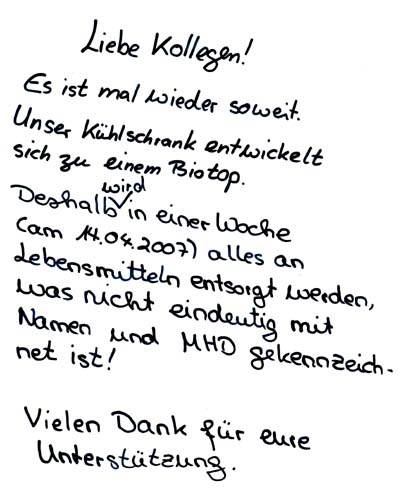 Liebe Kollegen!
Es ist mal wieder soweit.
Unser Kühlschrank entwickelt
sich zu einem Biotop.
Deshalb wird in einer Woche
(am 14.04.2007) alles an
Lebensmitteln entsorgt werden,
was nicht eindeutig mit
Namen und MHD gekennzeich-
net ist!
Vielen Dank für eure
Unterstützung.